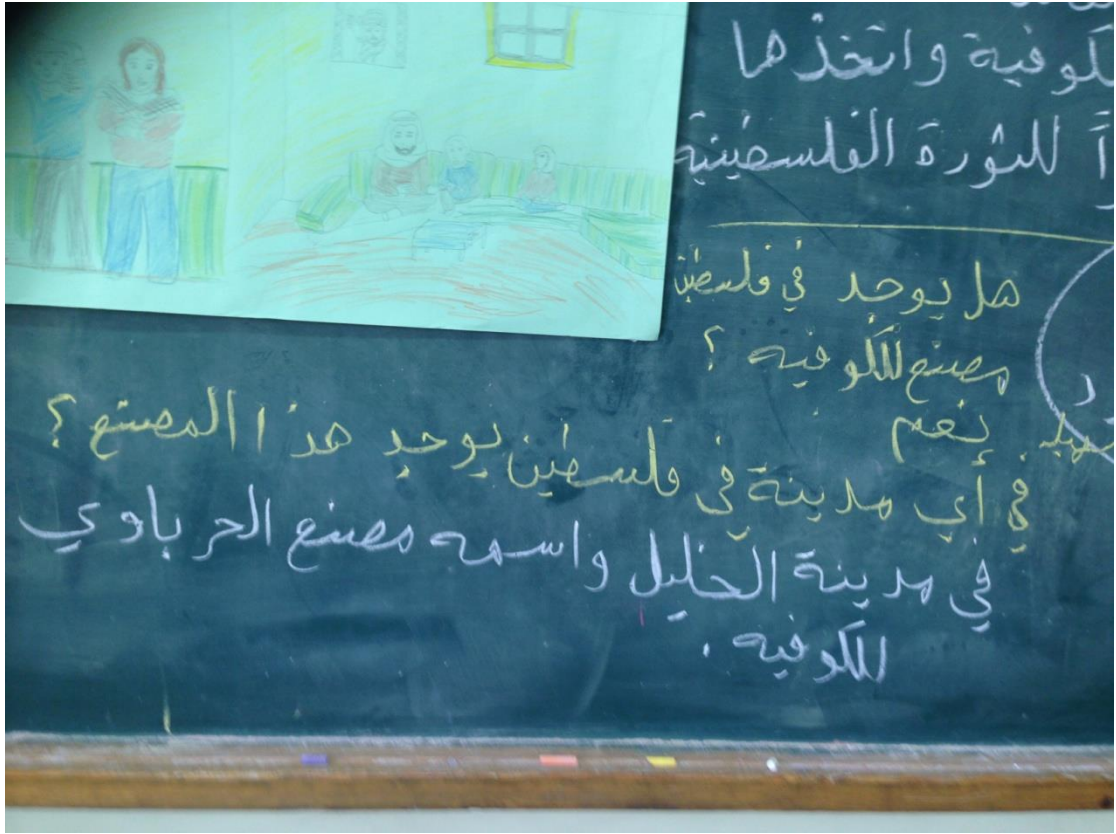 الكوفية واتخذها
للثورة الفلسطينية
هل يوجد في فلسطين
مصنع للكوفيه ؟
نعم
في أي مدينة في فلسطين يوجد هذا المصنع ؟
في مدينة الخليل واسمه مصنع الحرباوي
للكوفيه .